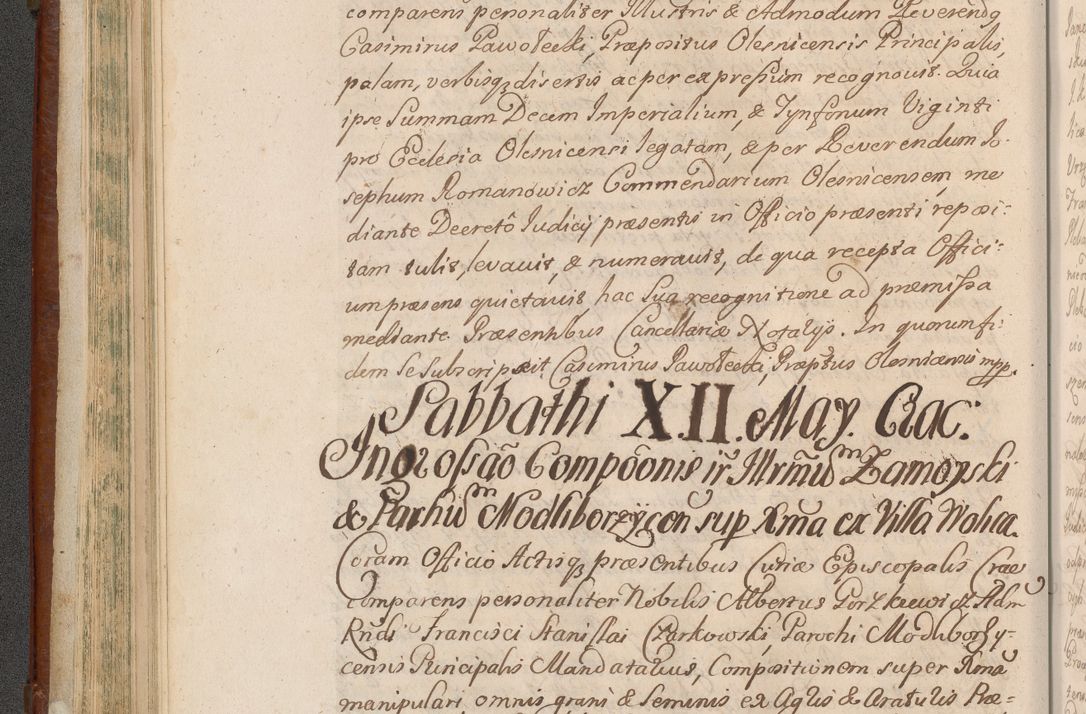 comparens personaliter Illustris & Admodum Reverendg
Casimirus Pawołecki, Præpositus Olesnicensis Principalis,
palam, verbisq; disertis ac per expressum recognovit. Quia
ipse Summam Decem Imperialium, & Tynfonum Viginti
pro Ecclesia Olesnicensi legatam, & per Reverendum Jo-
sephum Romanowicz Commendarium Olesnicensem me
diante Decretô Iudicÿ præsentis in Officio præsenti reposi:
tam tulit, levavit, & numeravit, de qua recepta Offici:
um præsens quietavit hac Sua recognitione ad præmissa
mediante Præsentibus Cancellariæ Notarijs. In quorum fi:
dem se subscripsit Casimirus Pawołecki, Præptus Olesnicensis mpp.
Sabbathi X.II. May. Crac:
Ingrossaõ Compõonis ir̃ Illrm̃ũ Zamoyski
& Parhũ Modliborzÿcen sup Rm̃a ex Villa Wolica.
Coram Officio Actisq; præsentibus Curiæ Episcopalis Crac
comparens personaliter Nobilis Albertus Gorzkiewicz Adm
Rñdi Francisci Stanislai Czarkowski, Parochi Modliborzy-
censis Principalis Mandatarius, Compositionem super Rmã
manipulari omnis grani & seminis ex Agris & araturis Præ-